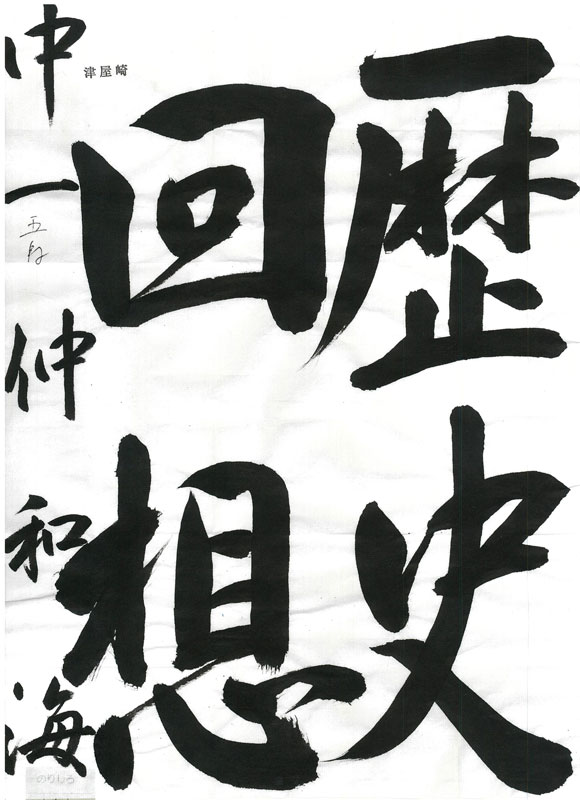 歴史
回想
津屋崎
中一 仲 和海
五月
のりしろ